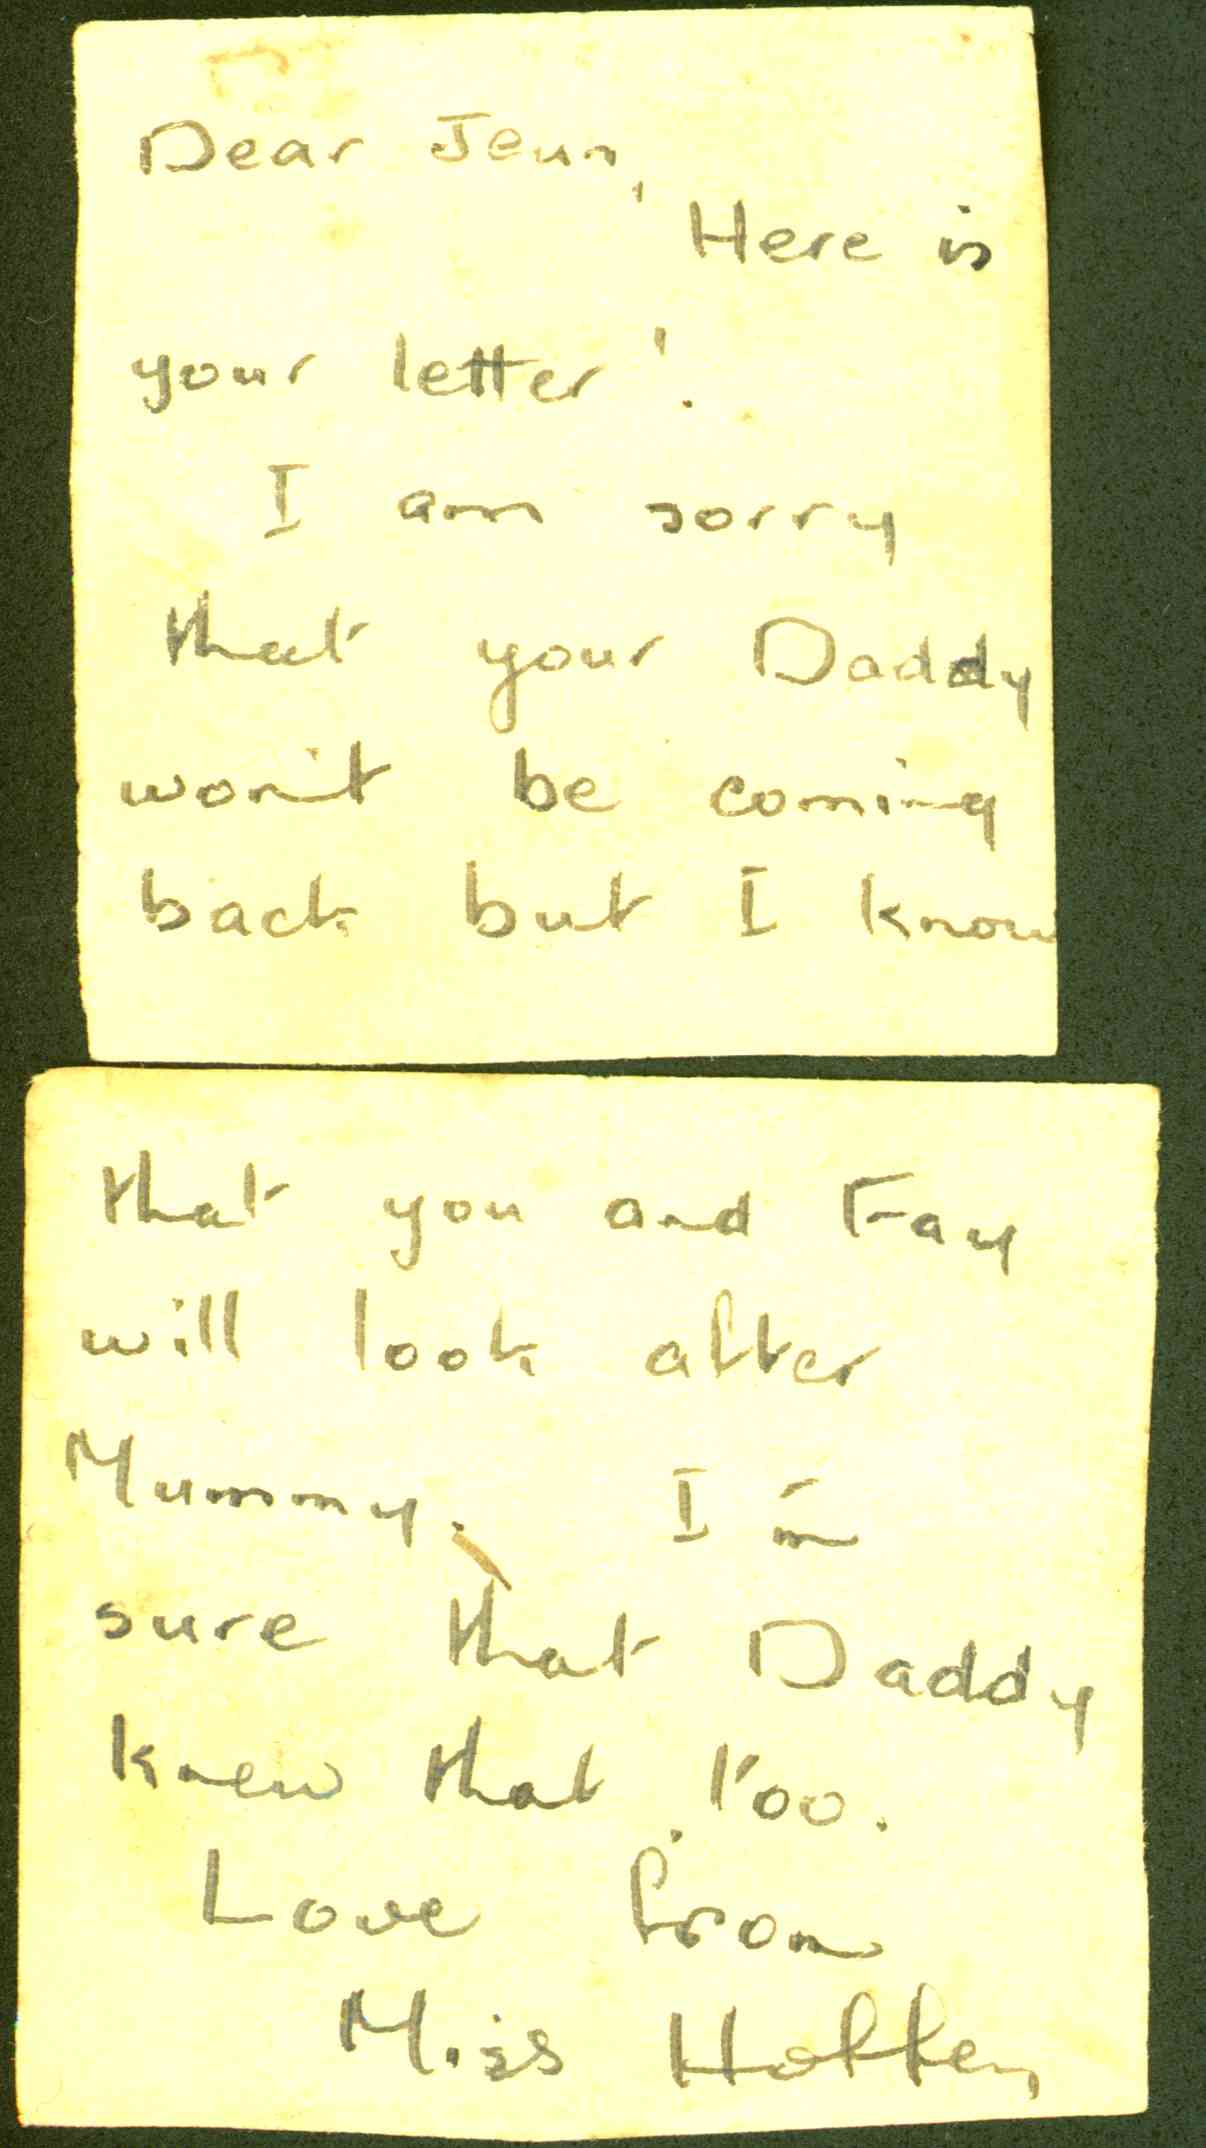 Dear Jenn,
Here is
your letter!
I am sorry
that your Daddy
won't be coming
back but I know
that you and Fay
will look after
Mummy. I'm
sure that Daddy
knew that too.
Love from
Miss